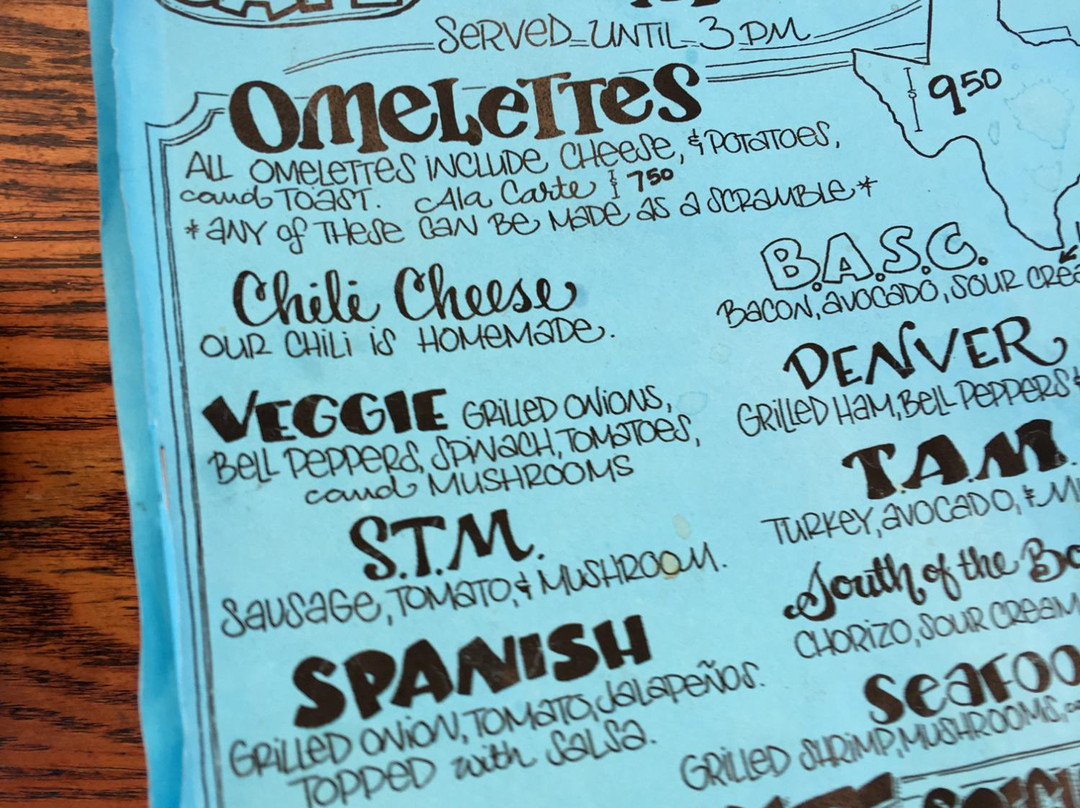 SERVED UNTIL 3 PM
OMELETTES
950
ALL OMELETTES INCLUDE CHEESE, & POTATOES,
and TOAST. Ala Carte $ 750
*ANY of THESE CAN BE MADE AS A SCRAMBLE*
Chili Cheese
OUR CHILI IS HOMEMADE.
VEGGIE GRILLED ONIONS,
BELL PEPPERS, SPINACH, TOMATOES,
and MUSHROOMS
S.T.M.
SAUSAGE, TOMATO, & MUSHROOM.
SPANISH
GRILLED ONION, TOMATO, JALAPEÑOS.
TOPPED with SALSA.
B.A.S.C.
BACON, AVOCADO, SOUR
DENVER
GRILLED HAM, BELL PEPPERS
T.A.M.
TURKEY, AVOCADO, &
South of the
CHORIZO, SOUR CREAM
GRILLED SHRIMP, MUSHROOMS,